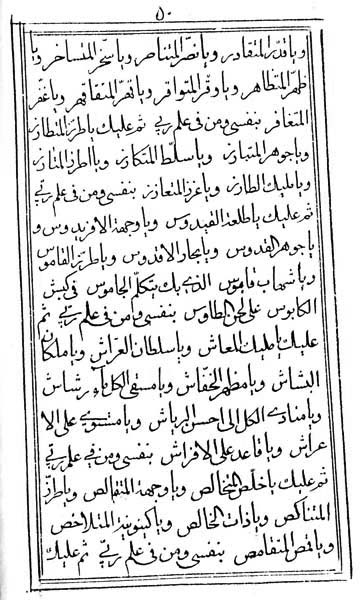 ٥٠
ويا قدر المتقادر ويا نصر المتناصر ويا سخر المتساخر ويا
ظهر المتظاهر ويا وقر المتواقر ويا قهر المتقاهر ويا غفر
المتغافر بنفسي ومن في علم ربي ثم عليك يا طرز المتطارز
ويا جوهر المتبارز ويا سلط المتكارز ويا طرز المتارز
ويا مليك الطارز ويا عزز المتعازز بنفسي ومن في علم ربي
ثم عليك يا طلعة القيدوس ويا وجهة الافريدوس و
يا جوهر القدوس ويا بحار الاقدوس ويا طرز القاموس
ويا شهاب قابوس الذي بك يتكلم الجاموس في كبش
الكابوس على لحن الطاوس بنفسي ومن في علم ربي ثم
عليك يا مليك المعاش ويا سلطان العراش ويا ملكان
البشاش ويا مظهر الخفاش ويا مسقي الكل ماء رشاش
ويا منادي الكل الى احسن الرياش ويا مستوي على الا
عراش ويا قاعد على الافراش بنفسي ومن في علم ربي
ثم عليك يا خلص الخالص ويا وجهة المتقالص ويا طرز
المتناكص ويا ذات الخالص ويا كينونية المتلاخص
ويا قمص المتقامص بنفسي ومن في علم ربي ثم عليك